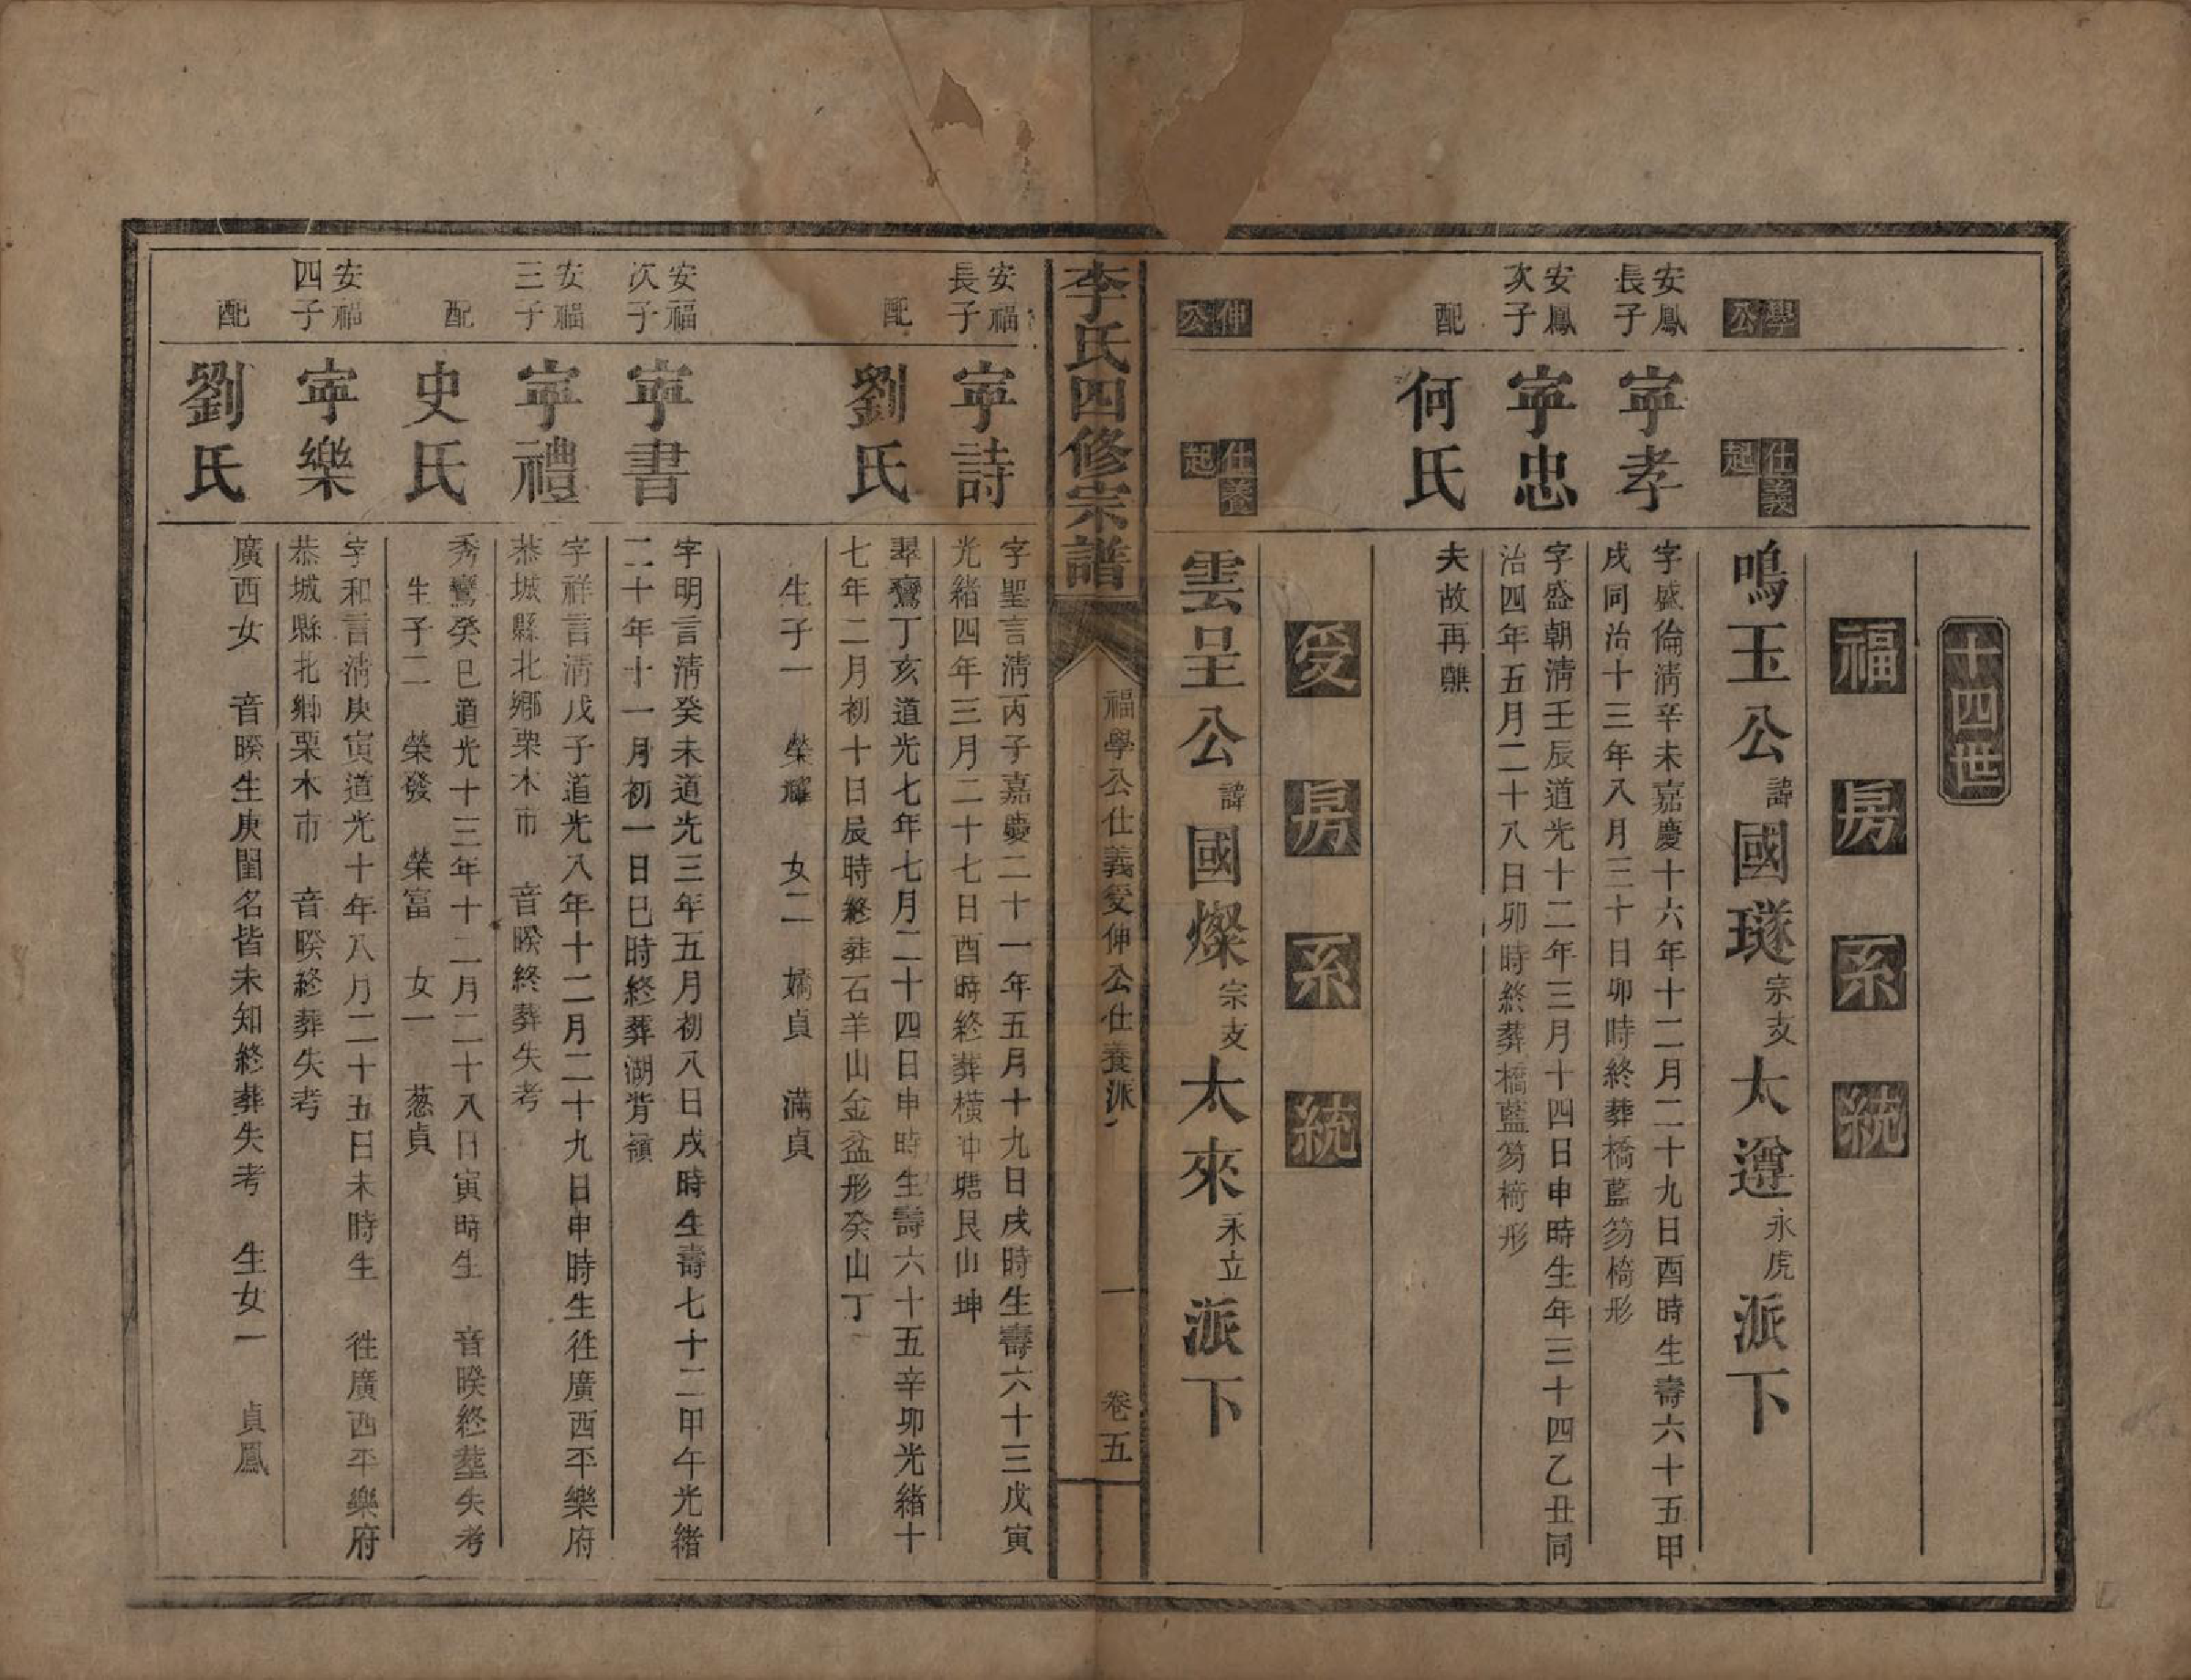 十四世
福房系統
學公
仕義起
鳴玉公諱國璲宗支太遵永虎派下
安鳳長子
寜孝
字盛倫淸辛未嘉慶十六年十二月二十九日酉時生壽六十五甲
戌同治十三年八月三十日卯時終葬橋藍笏椅形
安鳳次子
寜忠
字盛朝淸壬辰道光十二年三月十四日申時生年三十四乙丑同
治四年五月二十八日卯時終葬橋藍笏椅形
配
何氏
夫故再醮
受房系統
伸公
仕養起
雲呈公諱國燦宗支太來永立派下
李氏四修宗譜
福學公仕義受伸公仕養派
一
卷五
安福長子
寜詩
字聖言淸丙子嘉慶二十一年五月十九日戌時生壽六十三戊寅
光緒四年三月二十七日酉時終葬橫冲塘艮山坤
配
劉氏
翠鸞丁亥道光七年七月二十四日申時生壽六十五辛卯光緒十
七年二月初十日辰時終葬石羊山金盆形癸山丁
生子一　榮耀　女二　嬌貞　滿貞
安福次子
寜書
字明言淸癸未道光三年五月初八日戌時生壽七十二甲午光緒
二十年十一月初一日巳時終葬湖背嶺
安福三子
寜禮
字祥言淸戊子道光八年十二月二十九日申時生徃廣西平樂府
恭城縣北鄉栗木市　音暌終葬失考
配
史氏
秀鸞癸巳道光十三年十二月二十八日寅時生　音暌終塟失考
生子二　榮發　榮富　女一　葱貞
安福四子
寜樂
字和言淸庚寅道光十年八月二十五日未時生　徃廣西平樂府
恭城縣北鄉栗木市　音暌終葬失考
配
劉氏
廣西女　音暌生庚閨名皆未知終葬失考　生女一　貞鳳